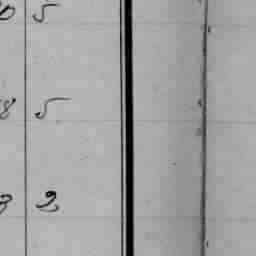 0 5
8 5
3 2